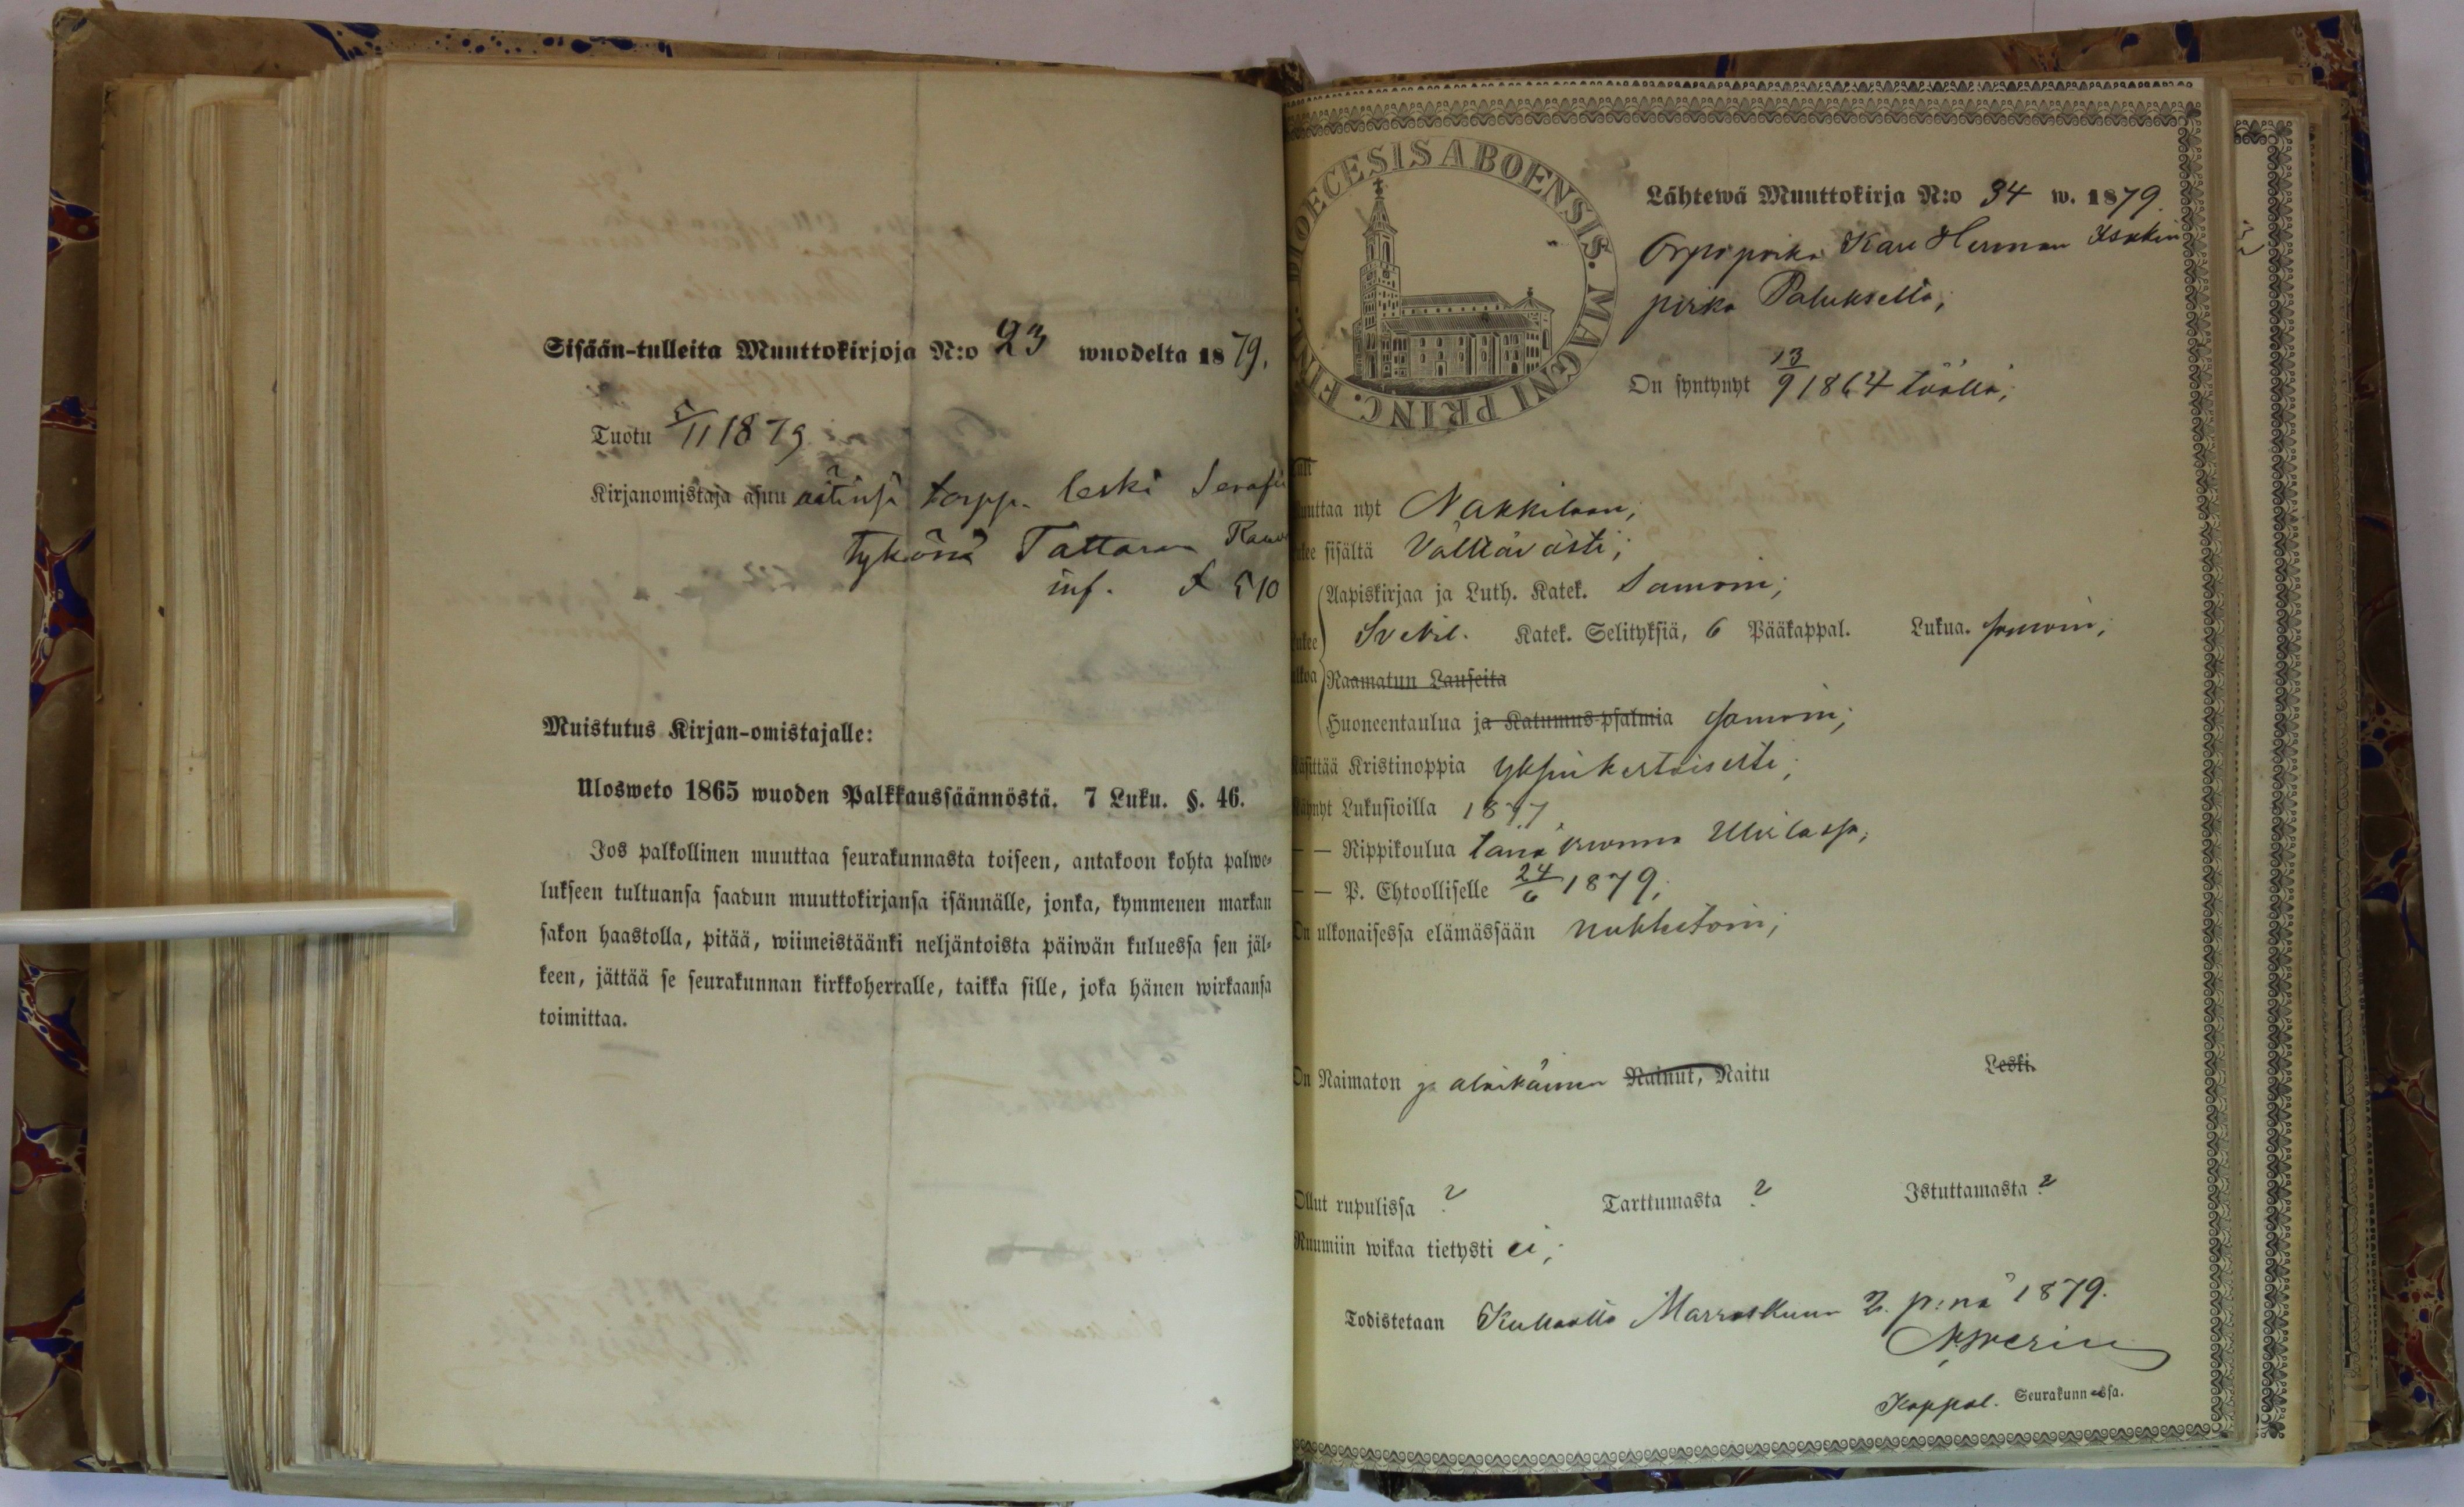 Sisään-tulleita Muuttokirjoja N:o 23 wuodelta 1879.
Tuotu 5/11 1879
Kirjanomistaja asuu äitinsä torpp. leski Serafi
tykönä Tattaran
inf. 510
Muistutus Kirjan-omistajalle:
Ulosweto 1865 wuoden Palkkaussäännöstä. 7 Luku. §. 46.
Jos palkollinen muuttaa seurakunnasta toiseen, antakoon kohta palwe-
lukseen tultuansa saadun muuttokirjansa isännälle, jonka, kymmenen markan
sakon haastolla, pitää, wiimeistäänki neljäntoista päiwän kuluessa sen jäl-
keen, jättää se seurakunnan kirkkoherralle, taikka sille, joka hänen wirkaansa
toimittaa.
DIOECESIS ABOENSIS. MAGNI PRINC. FINL.
Lähtewä Muuttokirja N:o 34 w. 1879.
Orpopoika Karl Herman Isakin
poika Palukselta,
On syntynyt 13/9 1864 täällä;
uuttaa nyt Nakkilaan,
ukee sisältä Välttävästi;
Aapiskirjaa ja Luth. Katek. Samoin;
ukee Svebil. Katek. Selityksiä, 6 Pääkappal. Lukua. samoin;
ulkoa Raamatun Lauseita
Huoneentaulua ja Katumus-psalmia samoin;
äsittää Kristinoppia yksinkertaisesti;
äynyt Lukusioilla 1877
— — Rippikoulua tänä vuonna Ulvilassa;
— — P. Ehtoolliselle 24/6 1879;
On ulkonaisessa elämässään nuhteetoin;
On Naimaton ja alaikäinen Nainut, Naitu Leski.
Ollut rupulissa ? Tarttumasta ? Istuttamasta ?
Ruumiin wikaa tietysti ei;
Todistetaan Kullaalla Marraskuun 2. p:nä 1879.
Kappal. Seurakunnassa.